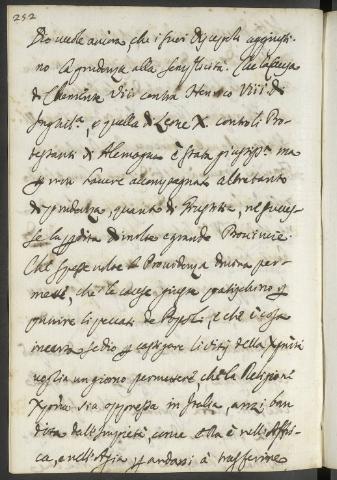 252
Dio vuole ancora, che i suoi Discepoli aggiusti-
no la prudenza alla semplicità. Che la causa
di Clemente VII contra Henrico VIII di
Inghil.ª, e quella di Leone X. contro li Pro-
testanti di Alemagna è stata giustiss.ª ma
p non havere accompagnato altretanta
di prudenza, quanto di giustitia, ne succes-
se la p̱dita di molte e grandi Provincie.
Che spesse volte la Providenza divina per-
mette, che le cause giuste patischino p
punire li peccati de Popoli, e che è cosa
incerta se dio p castigare li vitij della Xp̄nità
voglia un giorno permettere che la Religione
Xp̄na sia oppressa in Italia, anzi ban
dita dall'impietà, come ella è nell'Affri-
ca, e nell'Asia p andarsi à trasferire